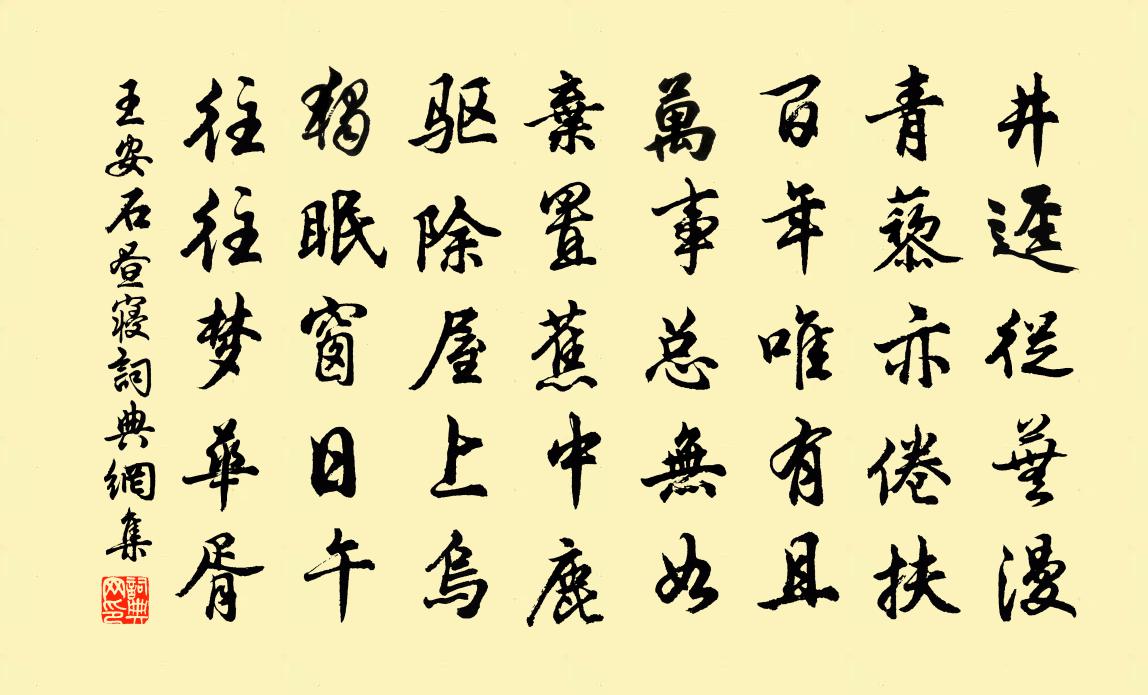 井逕從蕪漫
青藜亦倦扶
百年唯有且
萬事总無如
棄置蕉中鹿
驱除屋上烏
獨眠窗日午
往往梦華胥
王安石昼寢詞典網集
詞典网印